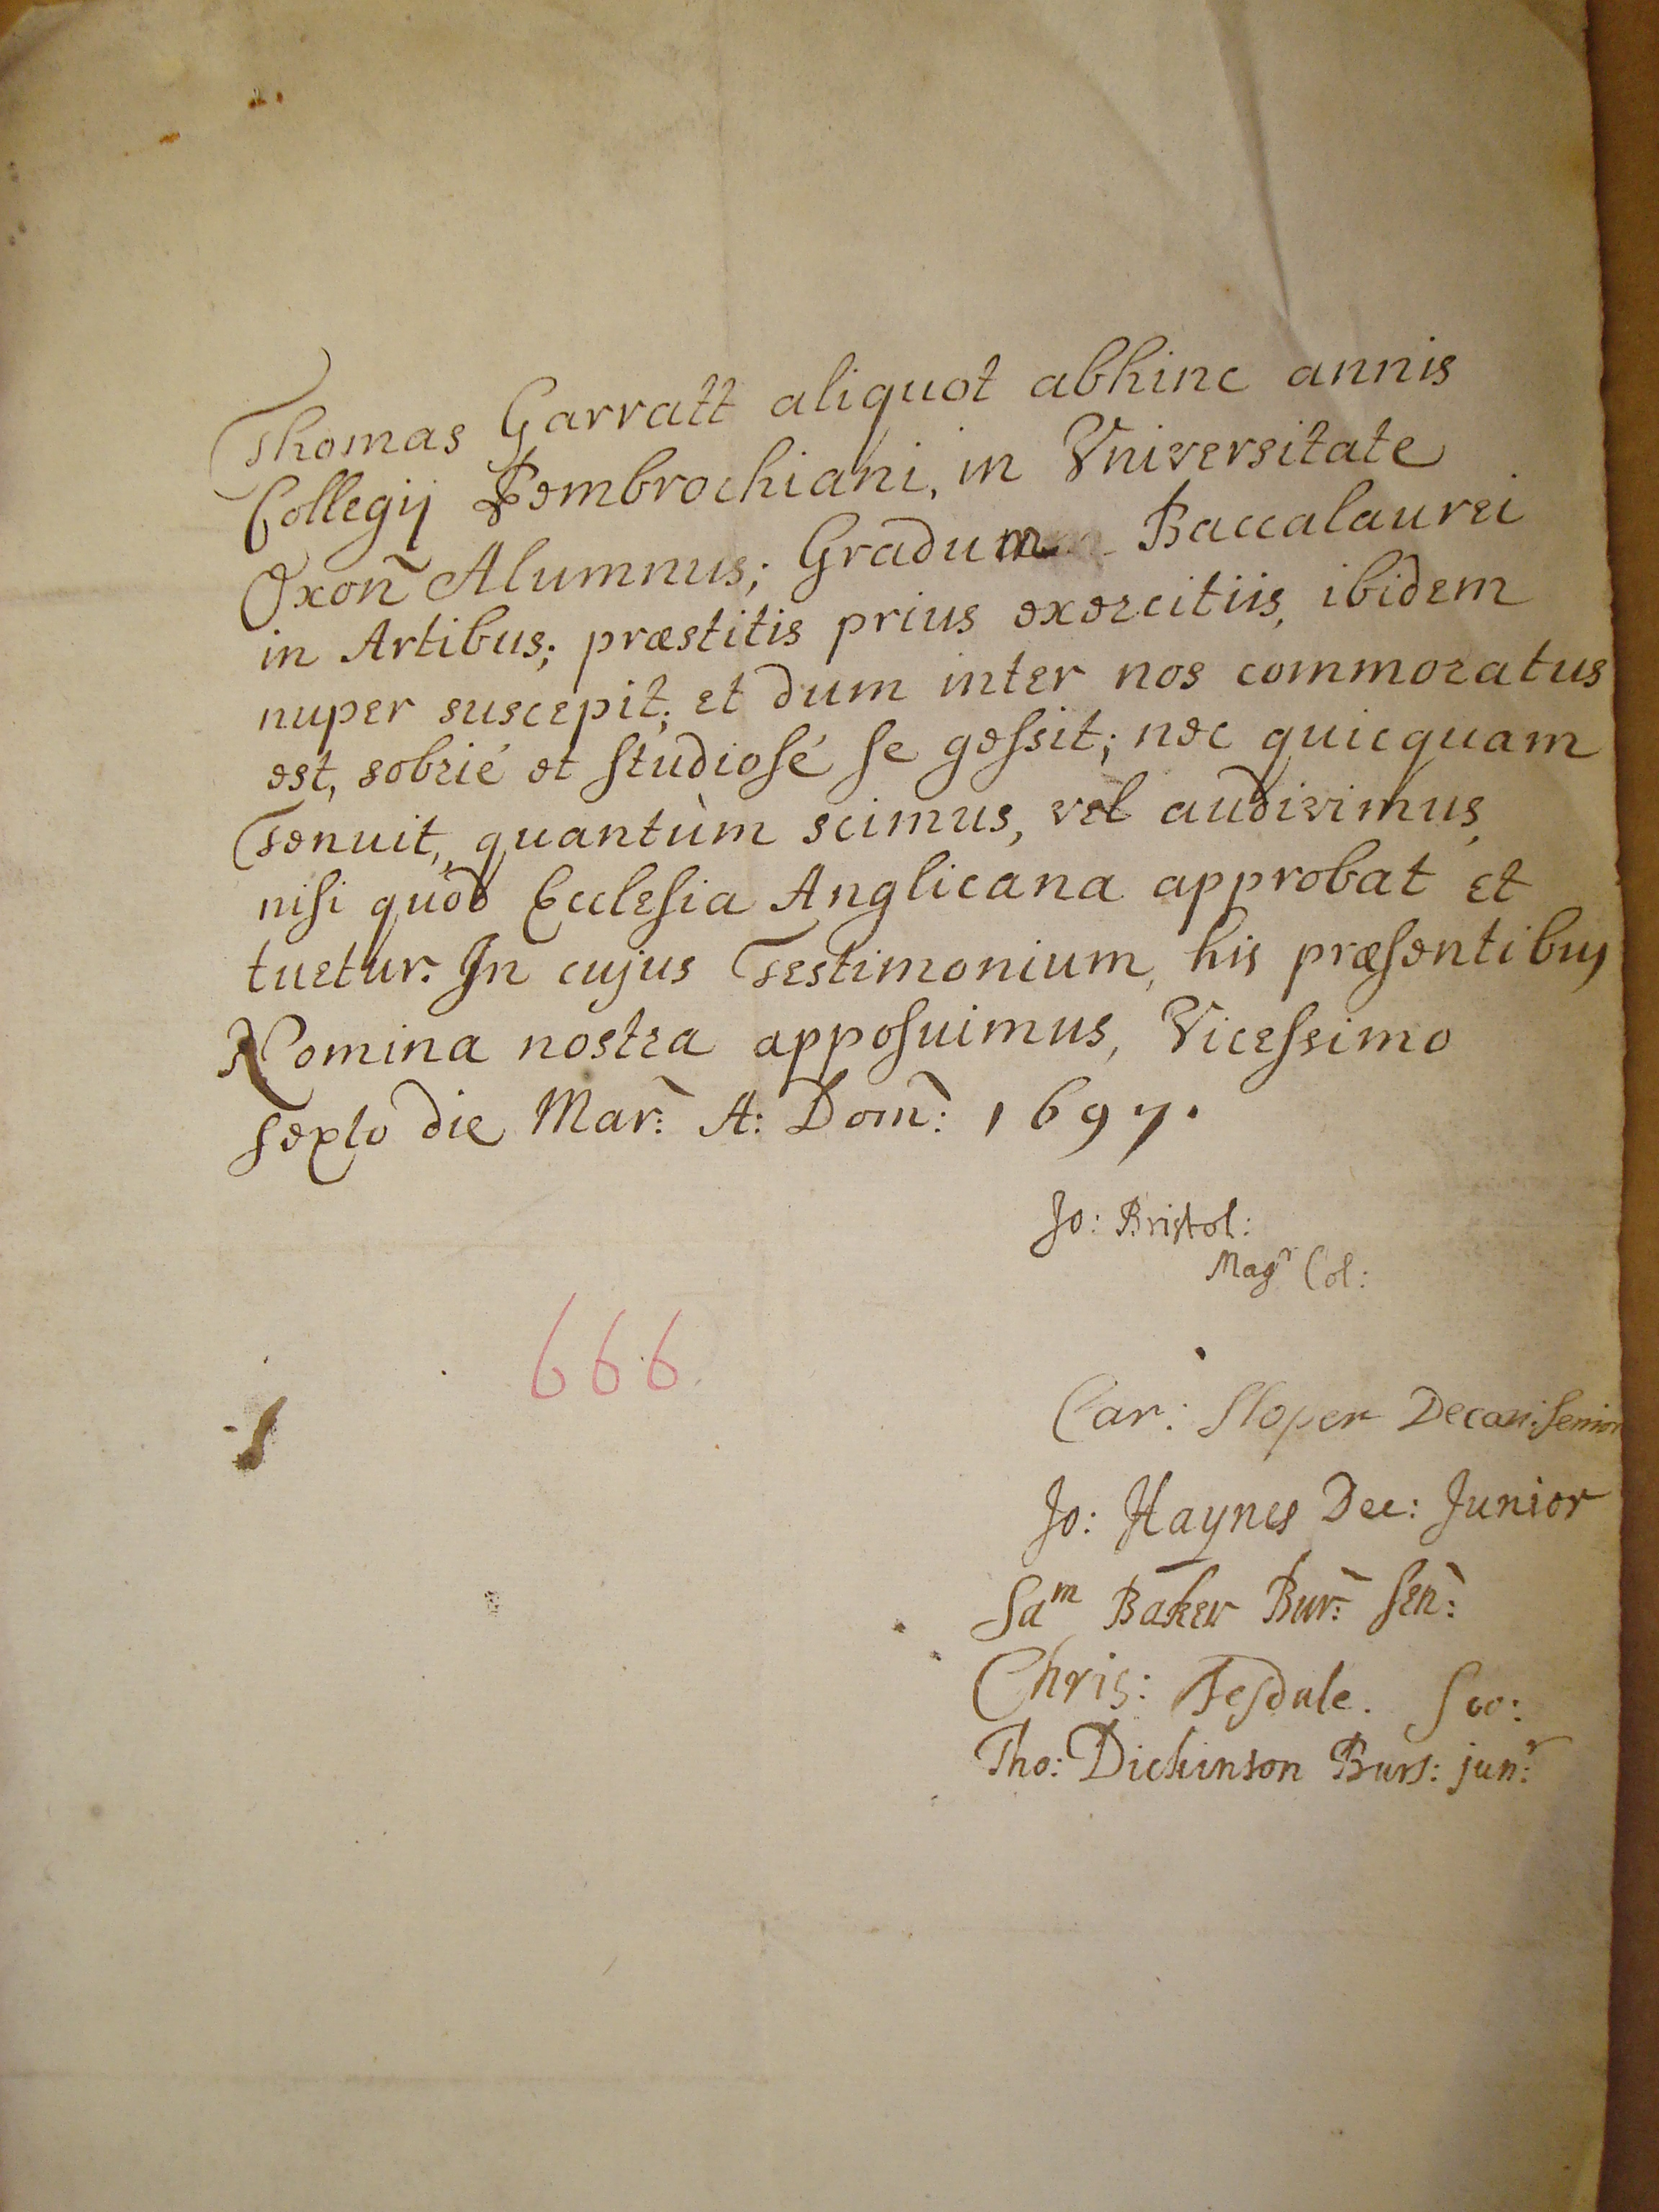 Thomas Garratt aliquot abhinc annis
Collegij Pembrochiani, in Vniversitate
Oxon̄ Alumnus; Gradum Baccalaurei
in Artibus; præstitis prius exercitiis, ibidem
nuper suscepit; et dum inter nos commoratus
est, sobrié et studiosé se gessit; nec quicquam
Tenuit, quantùm scimus, vel audivimus,
nisi quòd Ecclesia Anglicana approbat et
tuetur. In cujus Testimonium, his præsentibus
Nomina nostra apposuimus, Vicessimo
sexto die Mar̄: A: Dom̄: 1697.
Jo: Bristol:
Magr Col:
666
Car: Sloper Decan: Senior
Jo: Haynes Dec: Junior
Sam Baker Bur̄: Sen̄:
Chris: Tesdale. Soc:
Tho: Dickinson Burs: junr: